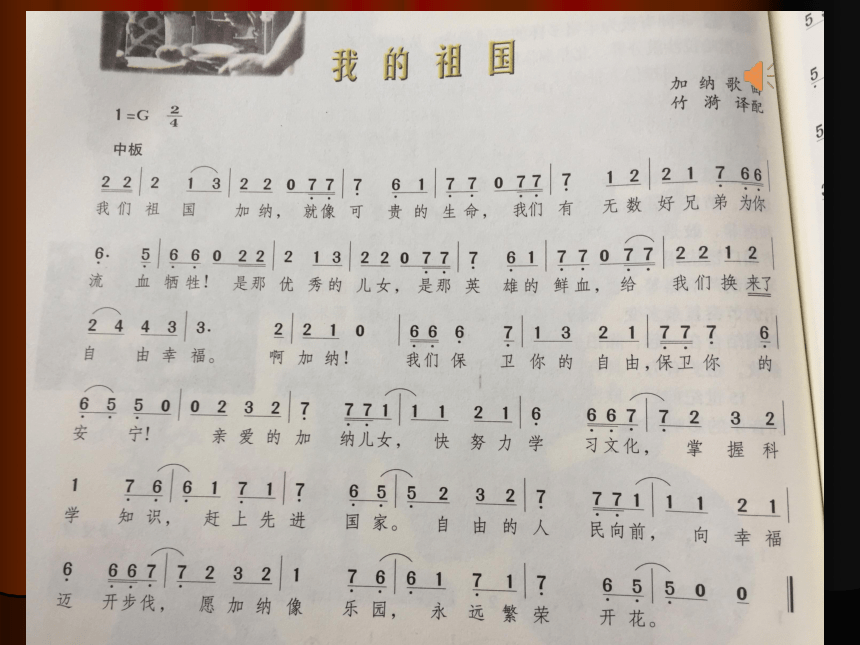 我的祖国
加纳歌曲
竹漪 译配
1=G 2/4
中板
2 2 | 2 1 3 | 2 2 0 7 7 | 7 6 1 | 7 7 0 7 7 | 7 1 2 | 2 1 7 6 6 |
我们祖国加纳，就像可贵的生命，我们有无数好兄弟为你
6· 5 | 6 6 0 2 2 | 2 1 3 | 2 2 0 7 7 | 7 6 1 | 7 7 0 7 7 | 2 2 1 2 |
流血牺牲！是那优秀的儿女，是那英雄的鲜血，给我们换来了
2 4 4 3 | 3· 2 | 2 1 0 | 6 6 6 7 | 1 3 2 1 | 7 7 7 6 |
自由幸福。啊加纳！我们保卫你的自由，保卫你的
6 5 5 0 | 0 2 3 2 | 7 7 7 1 | 1 1 2 1 | 6 6 6 7 | 7 2 3 2 |
安宁！亲爱的加纳儿女，快努力学习文化，掌握科
1 7 6 | 6 1 7 1 | 7 6 5 | 5 2 3 2 | 7 7 7 1 | 1 1 2 1 |
学知识，赶上先进国家。自由的人民向前，向幸福
6 6 6 7 | 7 2 3 2 | 1 7 6 | 6 1 7 1 | 7 6 5 | 5 0 0
迈开步伐，愿加纳像乐园，永远繁荣开花。
5
5
5